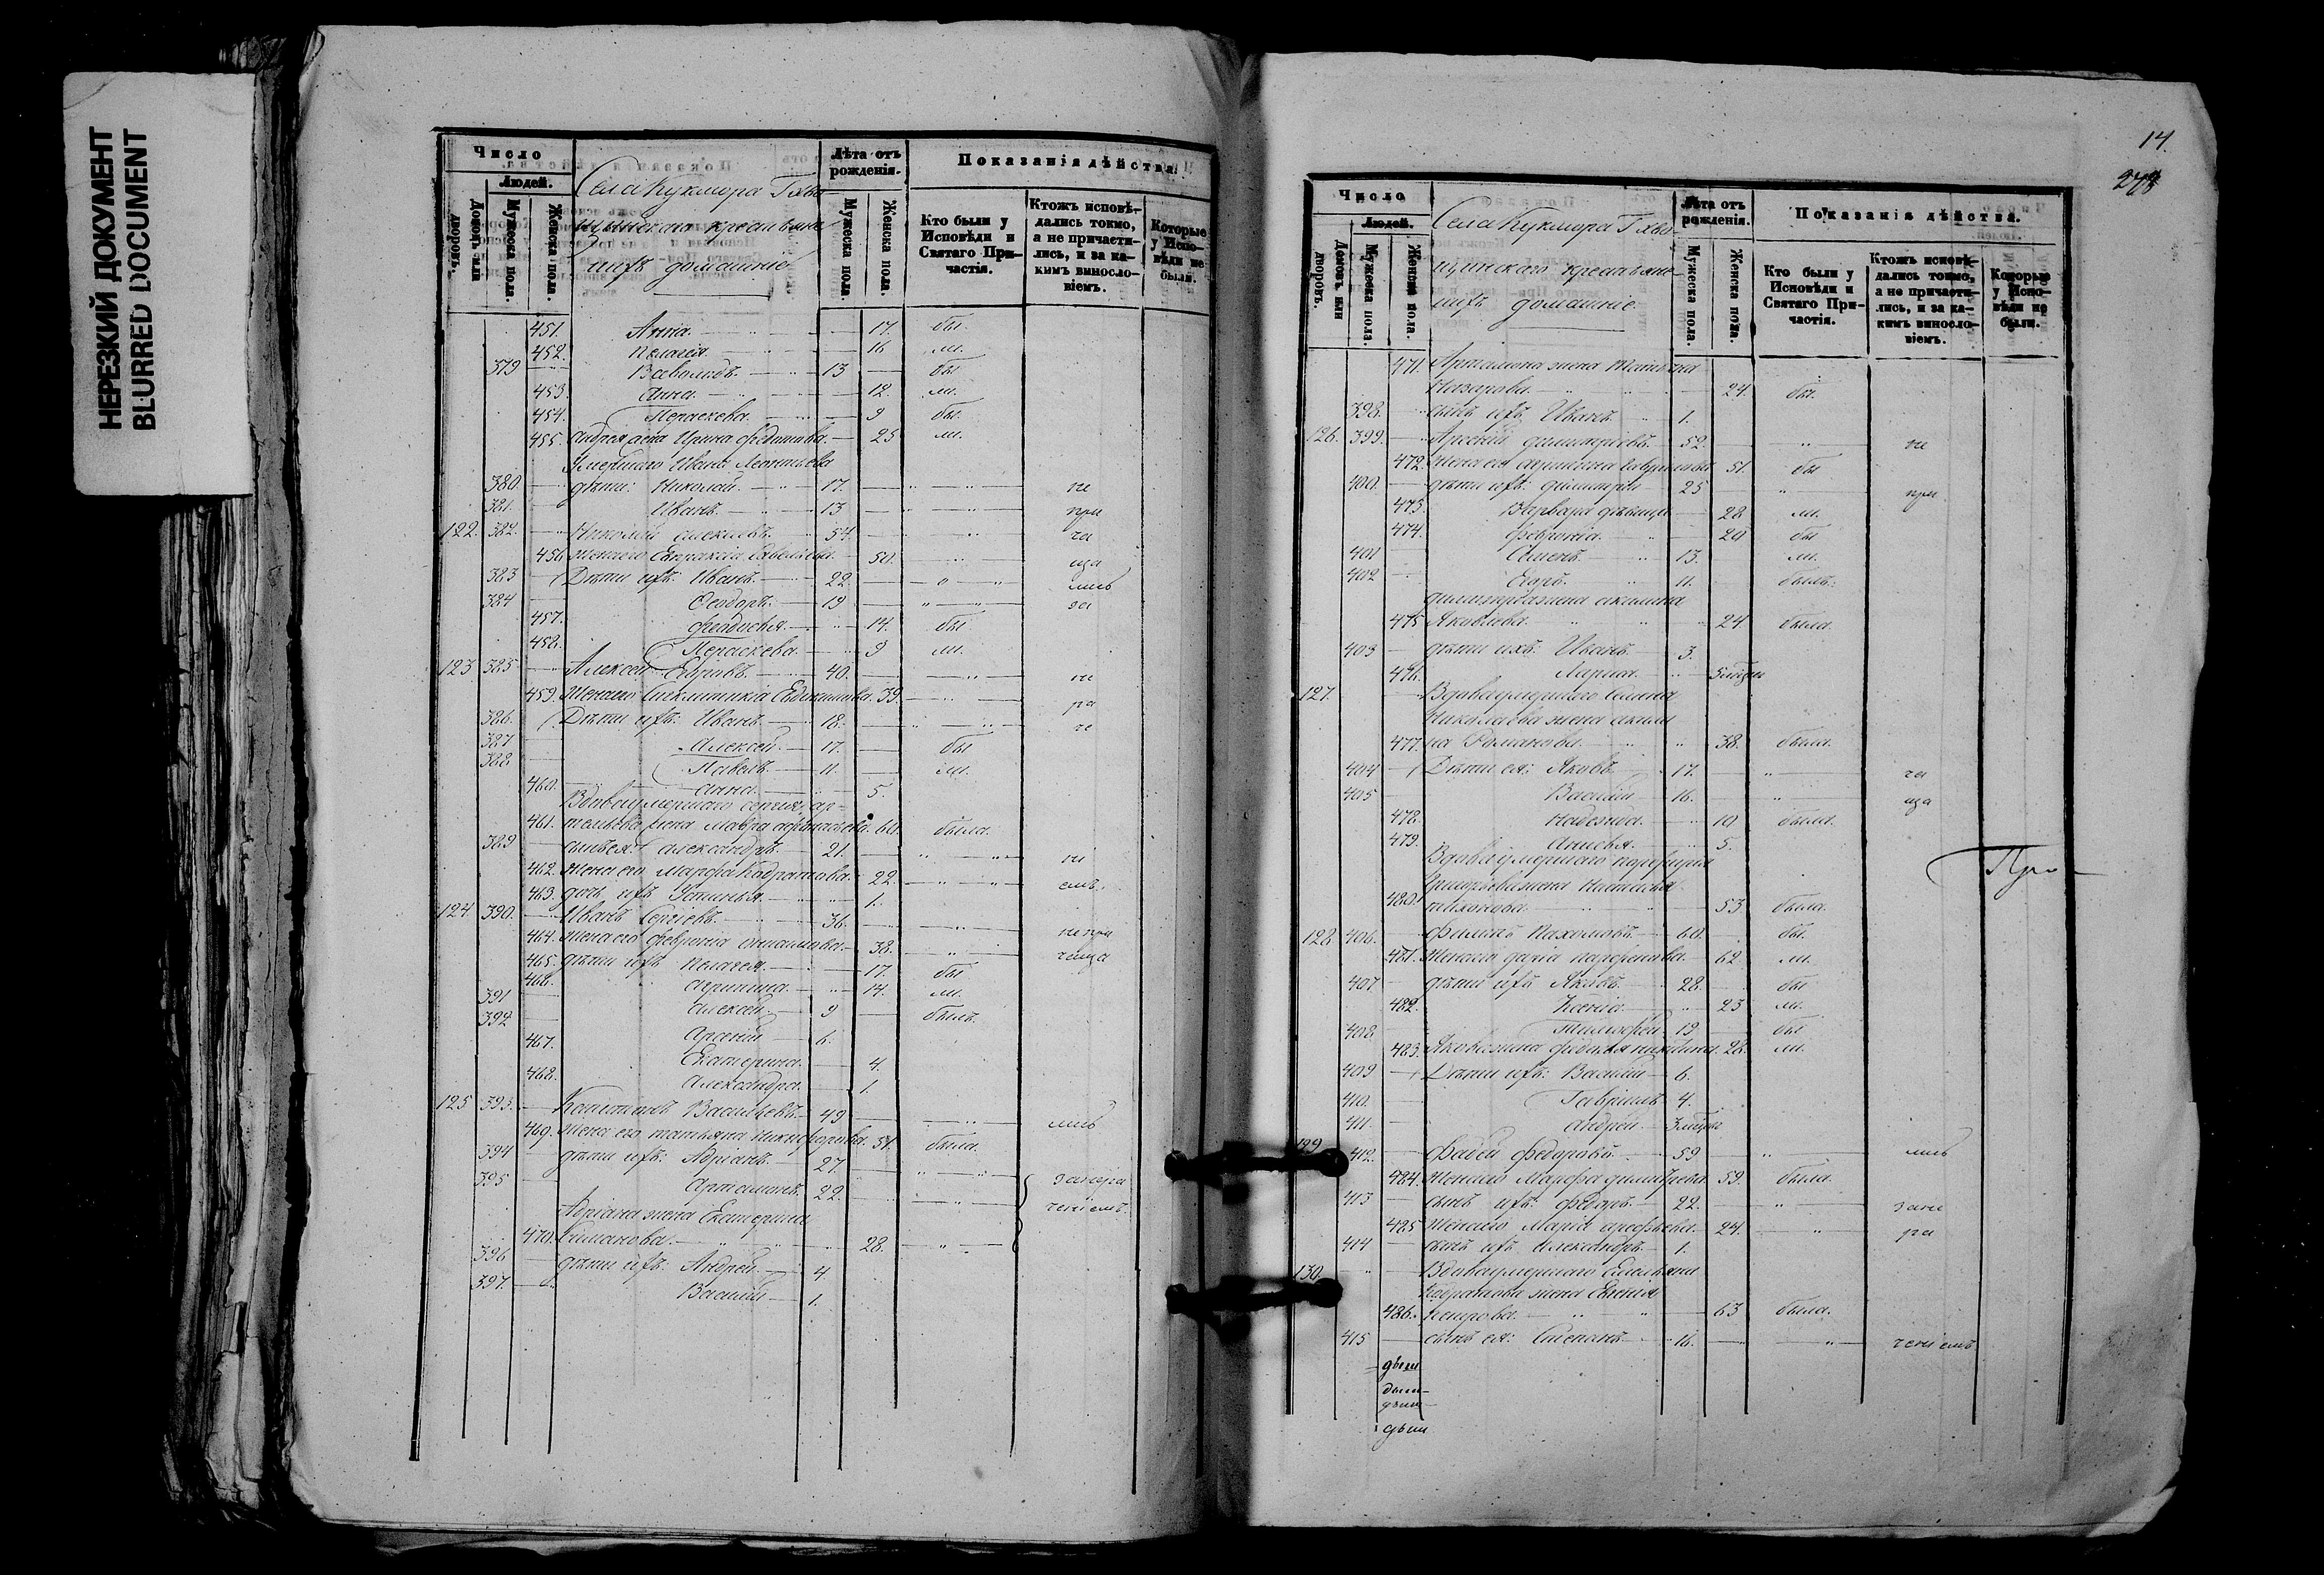 НЕРЕЗКИЙ ДОКУМЕНТ
BLURRED DOCUMENT
Число
Людей.
Домовъ или дворовъ.
Мужеска пола.
Женска пола.
Села Кукмора Г. хва-
щинскаго крестьяне
ихъ домашніе
Лѣта отъ рожденія.
Мужеска пола.
Женска пола.
Показанія дѣйства.
Кто были у Исповѣди и Святаго Причастія.
Ктожъ исповѣдались токмо, а не причастились, и за какимъ винословіемъ.
Которые у Исповѣди не были.
451. Анна. 17. бы
452. Пелагея 16 ли.
379 Всеволодъ. 13 бы
453 Анна. 12. ли.
454. Параскева. 9 бы.
455. Ирина 25 ли.
Умершаго Ивана Леонтьева
380 дѣти: Николай. 17. не
381. Иванъ. 13 при
122. 382. Николай 54. ча
456 Жена его Евпраксія Савельева 50. ща
383 Дѣти ихъ: Иванъ. 22. лись
384 Ѳеодоръ. 19 за
457. Ѳеодосья. 14. бы
458. Параскева. 9 ли.
123 385 Алексей Егоровъ. 40. не
459. Жена его Евдокимова. 39. ра
386. Дѣти ихъ: Иванъ. 18. че
387 Алексей. 17. бы
388 Павелъ. 11. ли.
460. Анна. 5.
Вдова умершаго Сергея ар-
461. жена Мавра 60. была.
389 сынъ ея: Александръ. 21. ні
462. Жена его Марфа Кодратова. 22. емъ.
463. дочь ихъ Устинья. 1.
124 390. Иванъ Сергіевъ. 36. не при
464. Жена его Февронья 38. чаща
465. дѣти ихъ Пелагея. 17. бы
466. Агрипина. 14. ли.
391 Алексей. 9 былъ.
392 Арсеній 6.
467. Екатерина. 4.
468. Александра. 1.
125 393. Капитонъ Васильевъ 49 лись
469. Жена его татьяна Никифорова. 51. была.
394 дѣти ихъ: Адріанъ. 27.
395 Артамонъ. 22. нераче
ченіемъ.
Адріана жена Екатерина
470. 28.
396 дѣти ихъ: Андрей. 4.
397. Василій 1.
14.
Число
Людей.
Домовъ или дворовъ.
Мужеска пола.
Женска пола.
Села Кукмора Г. хва-
щинскаго крестьяне
ихъ домашніе
Лѣта отъ рожденія.
Мужеска пола.
Женска пола.
Показанія дѣйства.
Кто были у Исповѣди и Святаго Причастія.
Ктожъ исповѣдались токмо, а не причастились, и за какимъ винословіемъ.
Которые у Исповѣди не были.
471. Артамона жена Татьяна
Назарова. 24. бы.
398. сынъ ихъ Иванъ. 1.
126. 399. Арсеній Димитріевъ. 52. не
472. Жена его Гаврилова 51. бы
400. дѣти ихъ: Димитрій 25 при
473. Варвара дѣвица 28 ли.
474. Февронія. 20 бы
401 Семенъ. 13. ли.
402 Егоръ. 11. былъ.
Димитрія жена Акилина
475 Яковлева. 24 была.
403 дѣти ихъ: Иванъ. 3.
476. Марья.
127. Вдова умершаго
Николаева жена Акили
477. на Романова. 38. была.
404 Дѣти ея: Яковъ. 17. ча
405 Василій 16. ща
478. Надежда. 10 была.
479. Анисья. 5.
Вдова умершаго порфирія
Григорьева жена Настасья
480. Тихонова. 53. была.
При
128 406. Филипъ Пахомовъ. 60. бы.
481. Жена его Дарія парфенова. 62 ли.
407 дѣти ихъ Яковъ. 28. бы
482. Ксенія 23 ли.
408 Тимофей. 19 бы
483. Якова жена Федосья Никитина. 28. ли.
409 Дѣти ихъ: Василій 6.
410. Гавріилъ 4.
411. Андрей
129 412. Фадей Федоровъ. 59 лись
484. Жена его Марфа Димитріева 59. была.
413 сынъ ихъ: Федоръ. 22. зане
485 Жена его Марія арефьева. 24. ра
414 сынъ ихъ Александръ. 1.
130. Вдова умершаго Емельяна
Кодратова жена Евгенія
486. петрова. 63 была.
415 сынъ ея: Степанъ. 16. ченіемъ